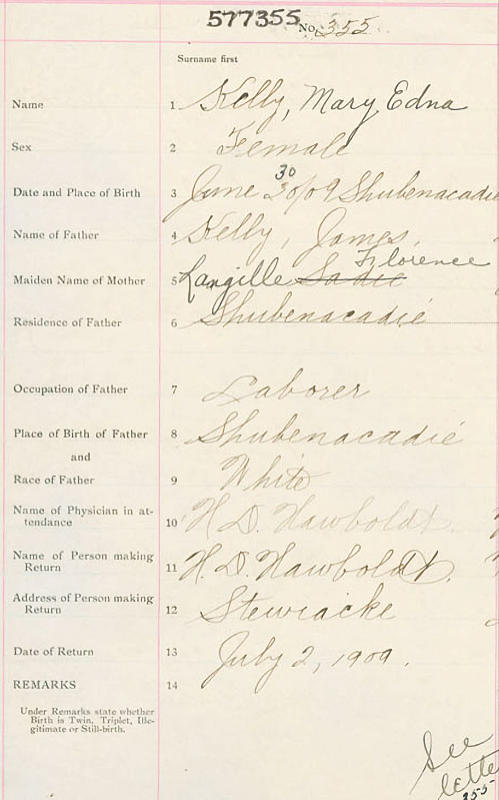 577355 No. 355
Surname first
Name 1 Kelly, Mary Edna
Sex 2 Female
30
Date and Place of Birth 3 June 30/09 Shubenacadie
Name of Father 4 Kelly, James.
Florence
Maiden Name of Mother 5 Langille Sadie
Residence of Father 6 Shubenacadie
Occupation of Father 7 Laborer
Place of Birth of Father 8 Shubenacadie
and
Race of Father 9 White
Name of Physician in at-
tendance 10 H. D. Hawboldt.
Name of Person making
Return 11 H. D. Hawboldt.
Address of Person making
Return 12 Stewiacke
Date of Return 13 July 2, 1909.
REMARKS 14
Under Remarks state whether
Birth is Twin, Triplet, Ille-
gitimate or Still-birth.
See
letter
355